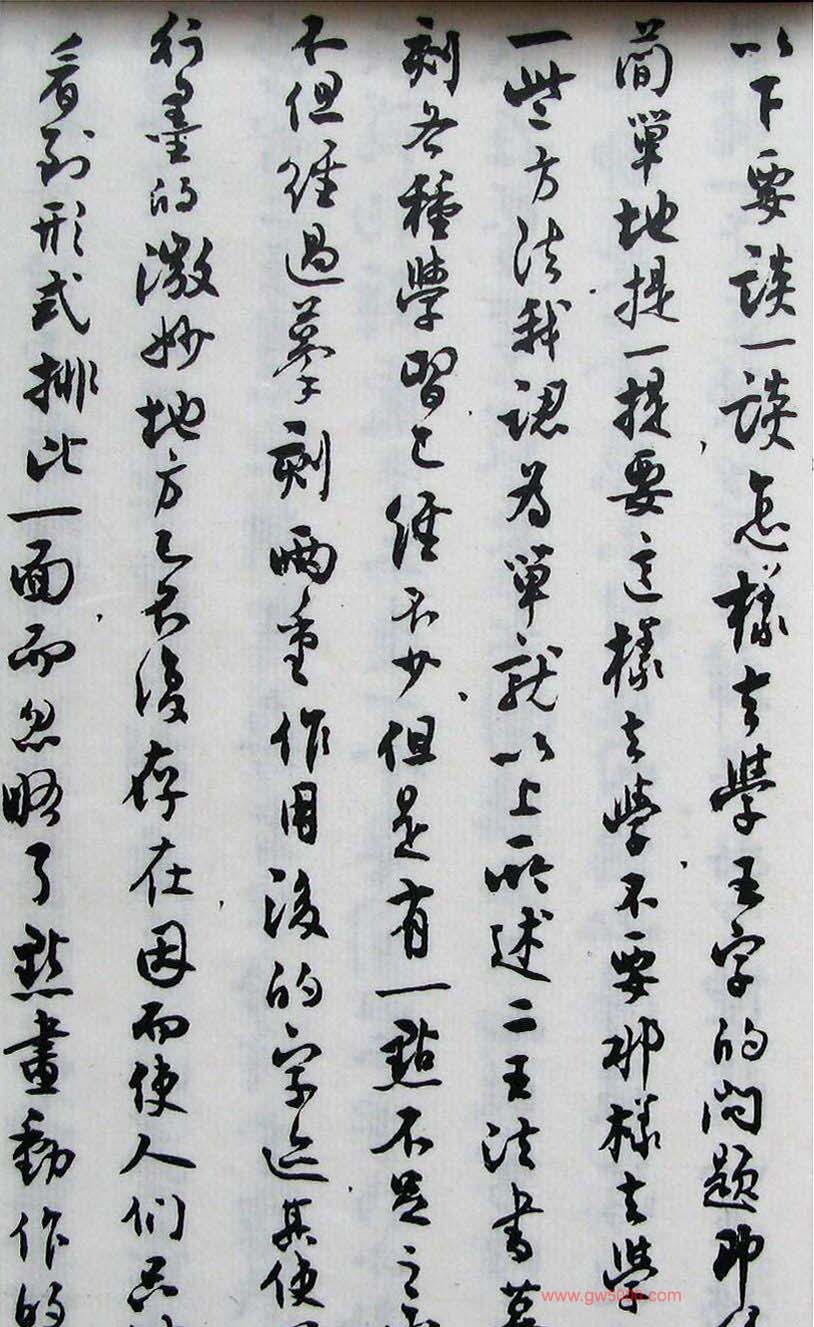 以下要談一談怎樣去學王字的問題即
簡單地提一提，要這樣去學，不要那樣去學
一些方法．我認為單就以上所述二王法書
刻各種學習，已經不少，但是有一點不足之
不但經過摹刻兩重作用後的字迹，其使
行墨的微妙地方已不復存在，因而使人們只
看到形式排比一面，而忽略了點畫動作的
www.gw5000.com